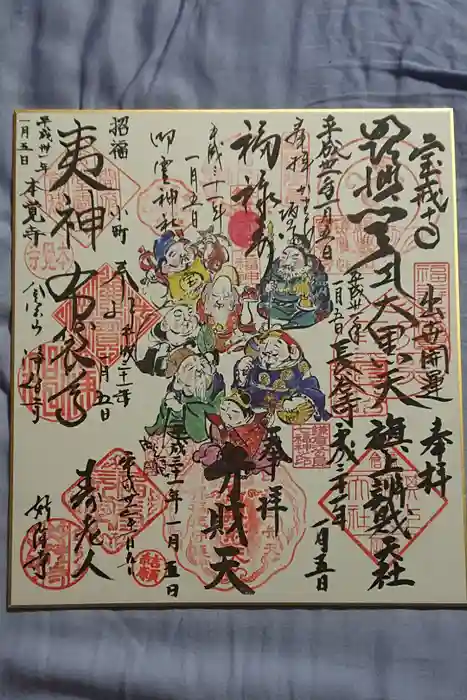 宝戒寺
毘沙門天
大黒天
出世開運
奉拝
旗上辨財天社
平成卅一年一月五日
奉拝
平成卅一年
一月五日
長谷寺
平成三十一年
一月五日
福禄寿
平成三十一年
一月五日
御霊神社
奉拝
弁財天
平成三十一年一月五日
招福
小町
夷神
平成卅一年
一月五日
本覚寺
布袋尊
平成三十一年
一月五日
金宝山
浄智寺
寿老人
平成三十一年一月五日
妙隆寺